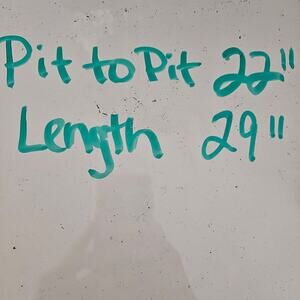 Pit to Pit 22"
Length 29"